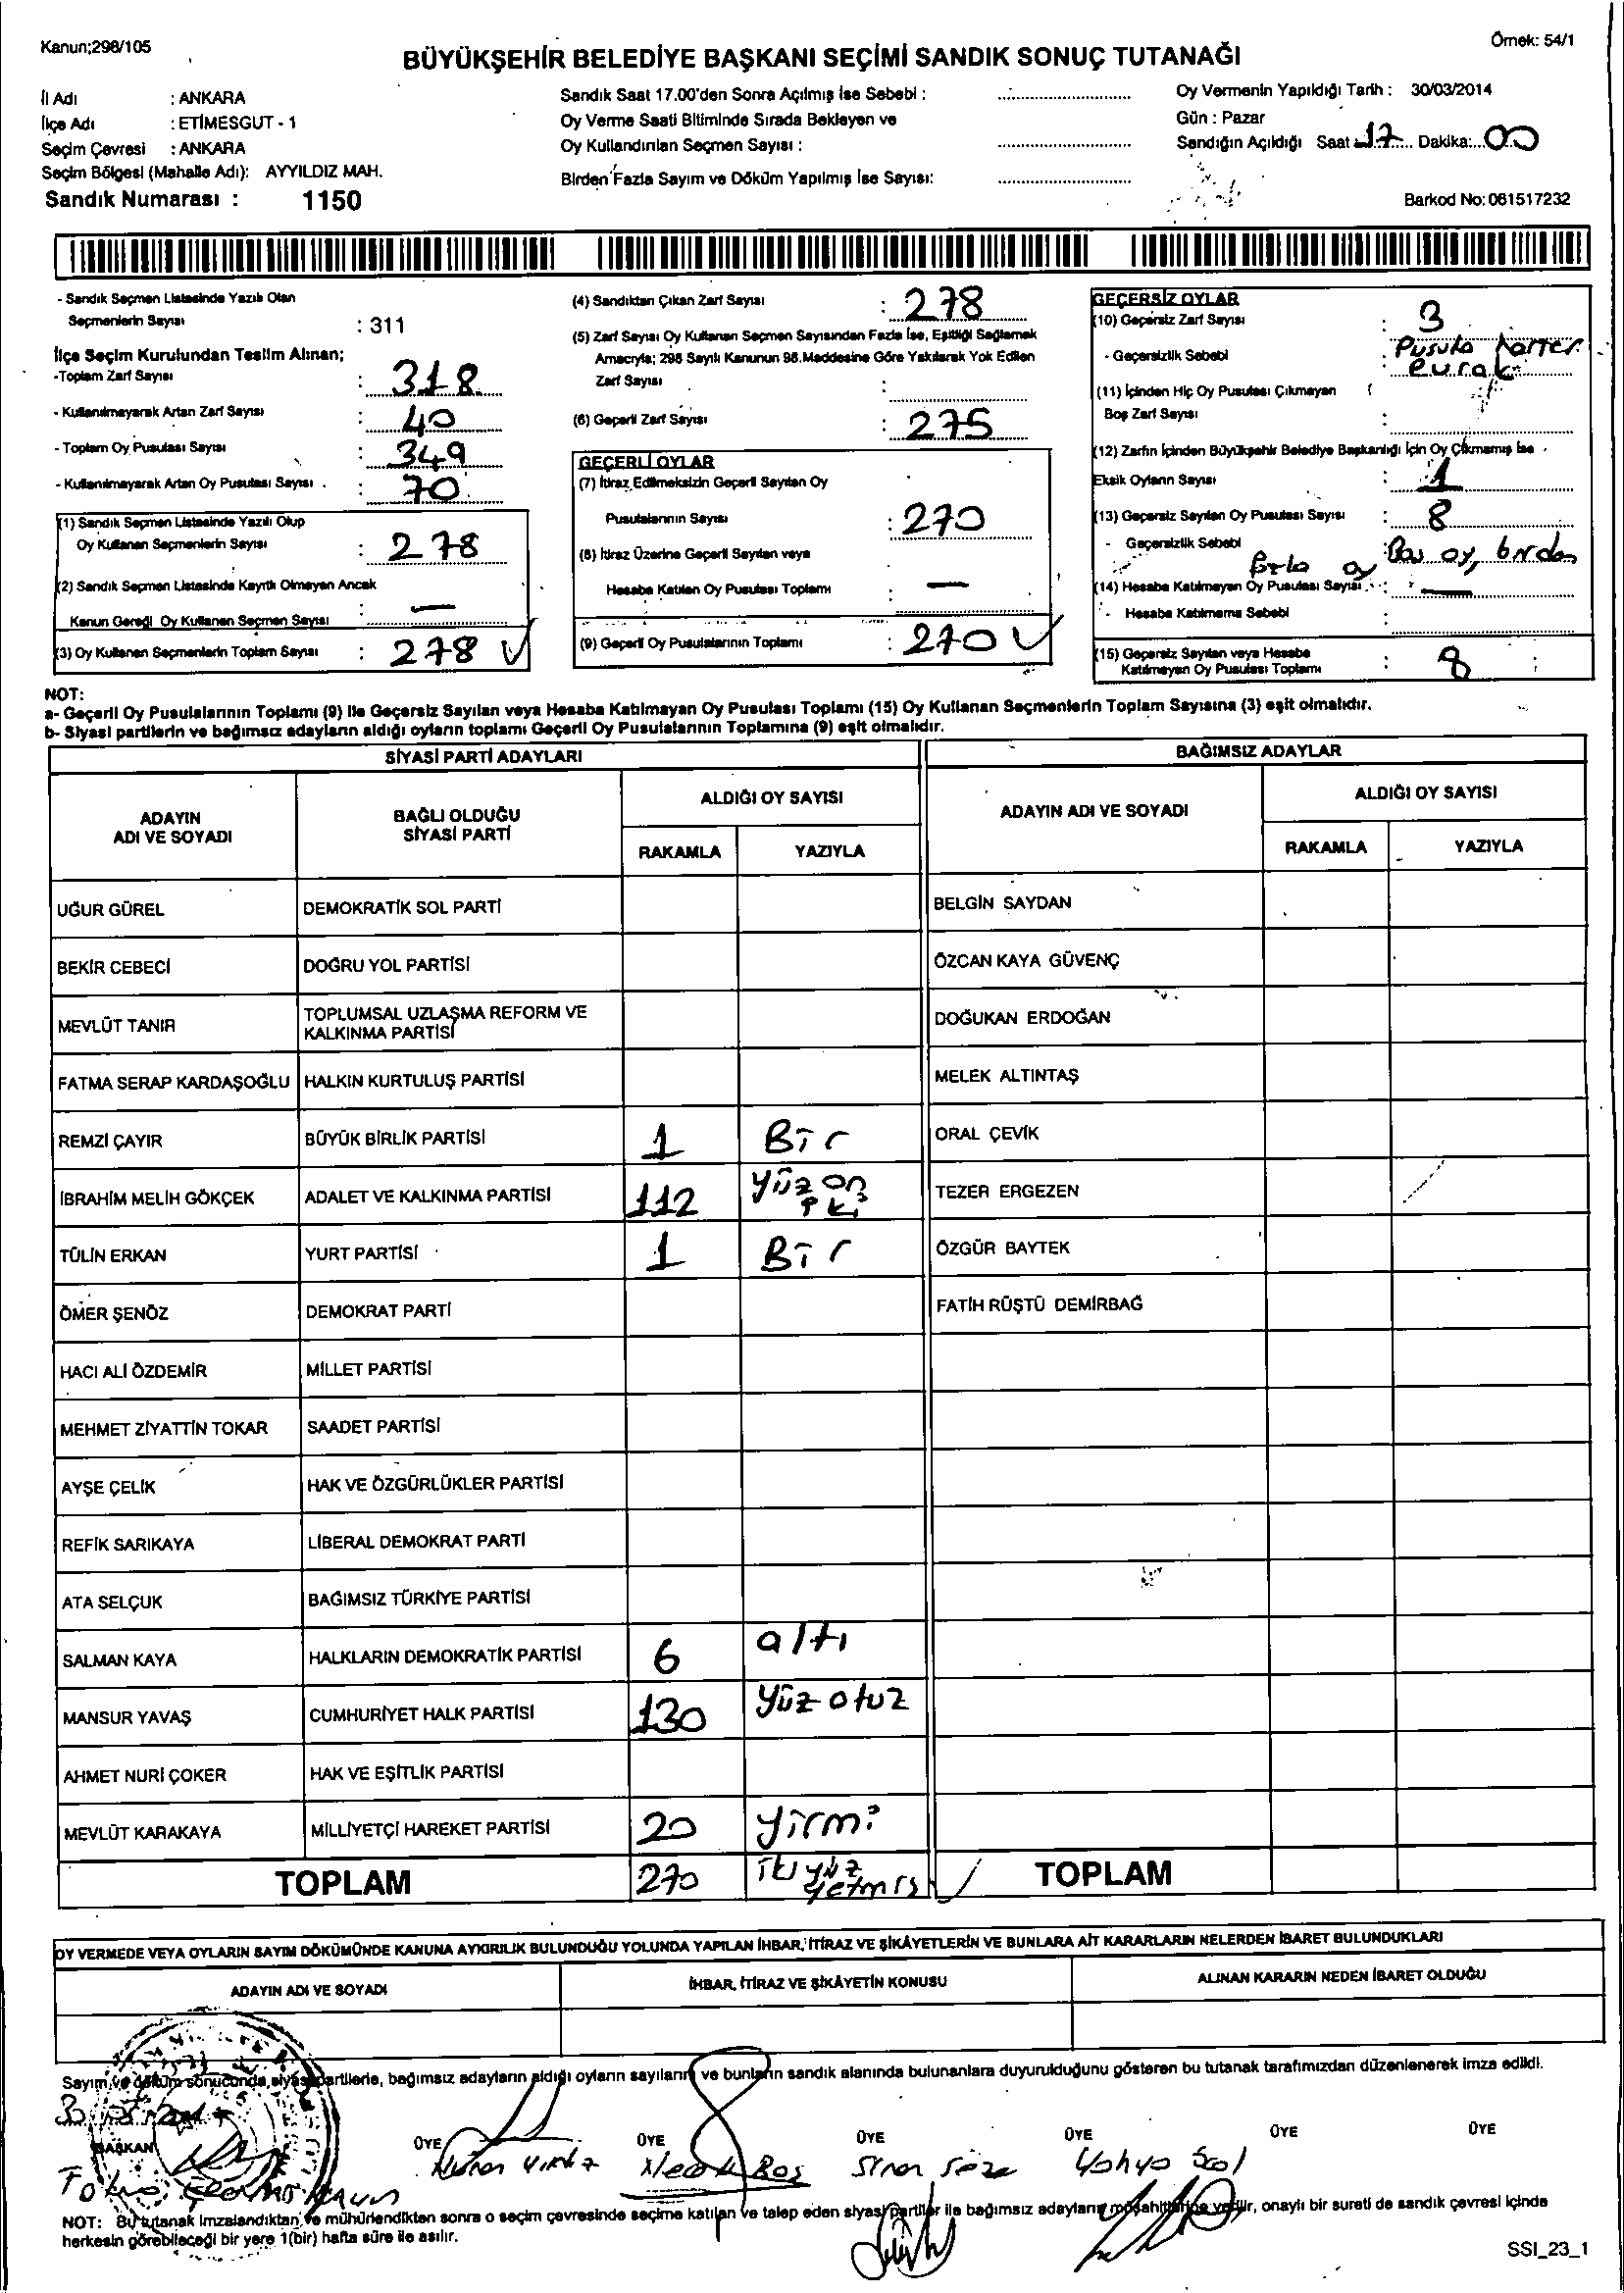 Kanun;298/105
Örnek: 54/1
BÜYÜKŞEHİR BELEDİYE BAŞKANI SEÇİMİ SANDIK SONUÇ TUTANAĞI
İl Adı : ANKARA
İlçe Adı : ETİMESGUT - 1
Seçim Çevresi : ANKARA
Seçim Bölgesi (Mahalle Adı): AYYILDIZ MAH.
Sandık Numarası : 1150
Sandık Saat 17.00'den Sonra Açılmış İse Sebebi :
Oy Verme Saati Bitiminde Sırada Bekleyen ve
Oy Kullandırılan Seçmen Sayısı :
Birden Fazla Sayım ve Döküm Yapılmış İse Sayısı:
Oy Vermenin Yapıldığı Tarih : 30/03/2014
Gün : Pazar
Sandığın Açıldığı Saat : 17 Dakika: 00
Barkod No: 061517232
- Sandık Seçmen Listesinde Yazılı Olan
Seçmenlerin Sayısı : 311
İlçe Seçim Kurulundan Teslim Alınan;
-Toplam Zarf Sayısı : 318
- Kullanılmayarak Artan Zarf Sayısı : 40
- Toplam Oy Pusulası Sayısı : 349
- Kullanılmayarak Artan Oy Pusulası Sayısı : 70
(1) Sandık Seçmen Listesinde Yazılı Olup
Oy Kullanan Seçmenlerin Sayısı : 278
(2) Sandık Seçmen Listesinde Kayıtlı Olmayan Ancak
Kanun Gereği Oy Kullanan Seçmen Sayısı : —
(3) Oy Kullanan Seçmenlerin Toplam Sayısı : 278
(4) Sandıktan Çıkan Zarf Sayısı : 278
(5) Zarf Sayısı Oy Kullanan Seçmen Sayısından Fazla İse, Eşitliği Sağlamak
Amacıyla; 298 Sayılı Kanunun 98.Maddesine Göre Yakılarak Yok Edilen
Zarf Sayısı :
(6) Geçerli Zarf Sayısı : 275
GEÇERLİ OYLAR
(7) İtiraz Edilmeksizin Geçerli Sayılan Oy
Pusulalarının Sayısı : 270
(8) İtiraz Üzerine Geçerli Sayılan veya
Hesaba Katılan Oy Pusulası Toplamı : —
(9) Geçerli Oy Pusulalarının Toplamı : 270
GEÇERSİZ OYLAR
(10) Geçersiz Zarf Sayısı : 3
- Geçersizlik Sebebi : Pusula
evrak
(11) İçinden Hiç Oy Pusulası Çıkmayan
Boş Zarf Sayısı :
(12) Zarfın İçinden Büyükşehir Belediye Başkanlığı İçin Oy Çıkmamış İse
Eksik Oyların Sayısı : 1
(13) Geçersiz Sayılan Oy Pusulası Sayısı : 8
- Geçersizlik Sebebi : Boş oy, birden
fazla oy
(14) Hesaba Katılmayan Oy Pusulası Sayısı : —
- Hesaba Katılmama Sebebi :
(15) Geçersiz Sayılan veya Hesaba
Katılmayan Oy Pusulası Toplamı : 8
NOT:
a- Geçerli Oy Pusulalarının Toplamı (9) ile Geçersiz Sayılan veya Hesaba Katılmayan Oy Pusulası Toplamı (15) Oy Kullanan Seçmenlerin Toplam Sayısına (3) eşit olmalıdır.
b- Siyasi partilerin ve bağımsız adayların aldığı oyların toplamı Geçerli Oy Pusulalarının Toplamına (9) eşit olmalıdır.
SİYASİ PARTİ ADAYLARI
BAĞIMSIZ ADAYLAR
ADAYIN ADI VE SOYADI
BAĞLI OLDUĞU SİYASİ PARTİ
ALDIĞI OY SAYISI
RAKAMLA YAZIYLA
ADAYIN ADI VE SOYADI
ALDIĞI OY SAYISI
RAKAMLA YAZIYLA
UĞUR GÜREL DEMOKRATİK SOL PARTİ BELGİN SAYDAN
BEKİR CEBECİ DOĞRU YOL PARTİSİ ÖZCAN KAYA GÜVENÇ
MEVLÜT TANIR TOPLUMSAL UZLAŞMA REFORM VE KALKINMA PARTİSİ DOĞUKAN ERDOĞAN
FATMA SERAP KARDAŞOĞLU HALKIN KURTULUŞ PARTİSİ MELEK ALTINTAŞ
REMZİ ÇAYIR BÜYÜK BİRLİK PARTİSİ 1 Bir ORAL ÇEVİK
İBRAHİM MELİH GÖKÇEK ADALET VE KALKINMA PARTİSİ 112 Yüz on iki TEZER ERGEZEN
TÜLİN ERKAN YURT PARTİSİ 1 Bir ÖZGÜR BAYTEK
ÖMER ŞENÖZ DEMOKRAT PARTİ FATİH RÜŞTÜ DEMİRBAĞ
HACI ALİ ÖZDEMİR MİLLET PARTİSİ
MEHMET ZİYATTİN TOKAR SAADET PARTİSİ
AYŞE ÇELİK HAK VE ÖZGÜRLÜKLER PARTİSİ
REFİK SARIKAYA LİBERAL DEMOKRAT PARTİ
ATA SELÇUK BAĞIMSIZ TÜRKİYE PARTİSİ
SALMAN KAYA HALKLARIN DEMOKRATİK PARTİSİ 6 altı
MANSUR YAVAŞ CUMHURİYET HALK PARTİSİ 130 Yüz otuz
AHMET NURİ ÇOKER HAK VE EŞİTLİK PARTİSİ
MEVLÜT KARAKAYA MİLLİYETÇİ HAREKET PARTİSİ 20 Yirmi
TOPLAM 270 İki yüz yetmiş TOPLAM
OY VERMEDE VEYA OYLARIN SAYIM DÖKÜMÜNDE KANUNA AYKIRILIK BULUNDUĞU YOLUNDA YAPILAN İHBAR, İTİRAZ VE ŞİKÂYETLERİN VE BUNLARA AİT KARARLARIN NELERDEN İBARET BULUNDUKLARI
ADAYIN ADI VE SOYADI İHBAR, İTİRAZ VE ŞİKÂYETİN KONUSU ALINAN KARARIN NEDEN İBARET OLDUĞU
Sayım ve döküm sonucunda siyasi partilerle, bağımsız adayların aldığı oyların sayılarını ve bunların sandık alanında bulunanlara duyurulduğunu gösteren bu tutanak tarafımızdan düzenlenerek imza edildi.
BAŞKAN ÜYE ÜYE ÜYE ÜYE ÜYE ÜYE
Yahya
NOT: Bu tutanak imzalandıktan ve mühürlendikten sonra o seçim çevresinde seçime katılan ve talep eden siyasi partiler ile bağımsız adayların müşahitlerine verilir, onaylı bir sureti de sandık çevresi içinde
herkesin görebileceği bir yere 1(bir) hafta süre ile asılır.
SSI_23_1